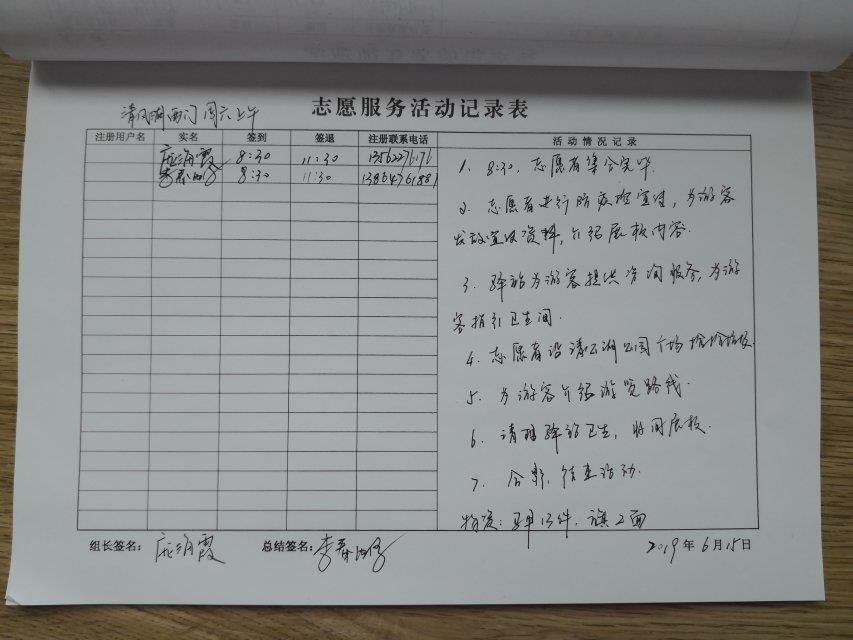 志愿服务活动记录表
西门周六上午
注册用户名 实名 签到 签退 注册联系电话 活动情况记录
霞 8:30 11:30
李春 8:30 11:30
1. 8:30,志愿者集合完毕.
2. 志愿者进行防疫控宣传,为游客
发放宣传资料,介绍展板内容.
3. 驿站为游客提供咨询服务,为游
客指引卫生间.
4. 志愿者沿清风湖公园广场捡拾垃圾.
5. 为游客介绍游览路线.
6. 清理驿站卫生,收回展板.
7. 合影,结束活动.
物资:马甲13件,旗2面
组长签名: 霞 总结签名: 李春
2019年6月15日